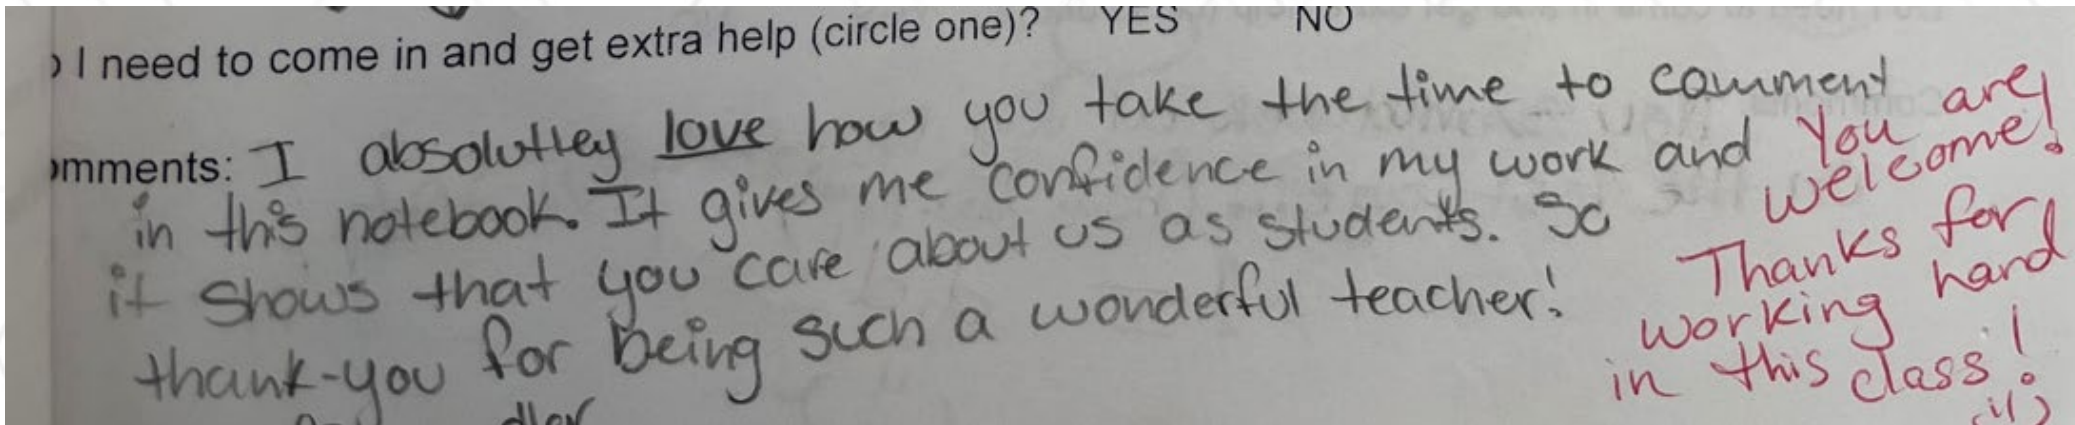 I need to come in and get extra help (circle one)? YES NO
omments: I absolutley love how you take the time to comment
in this notebook. It gives me confidence in my work and
it shows that you care about us as students. So
thank-you for being such a wonderful teacher!
You are
welcome!
Thanks for
working hard
in this class!